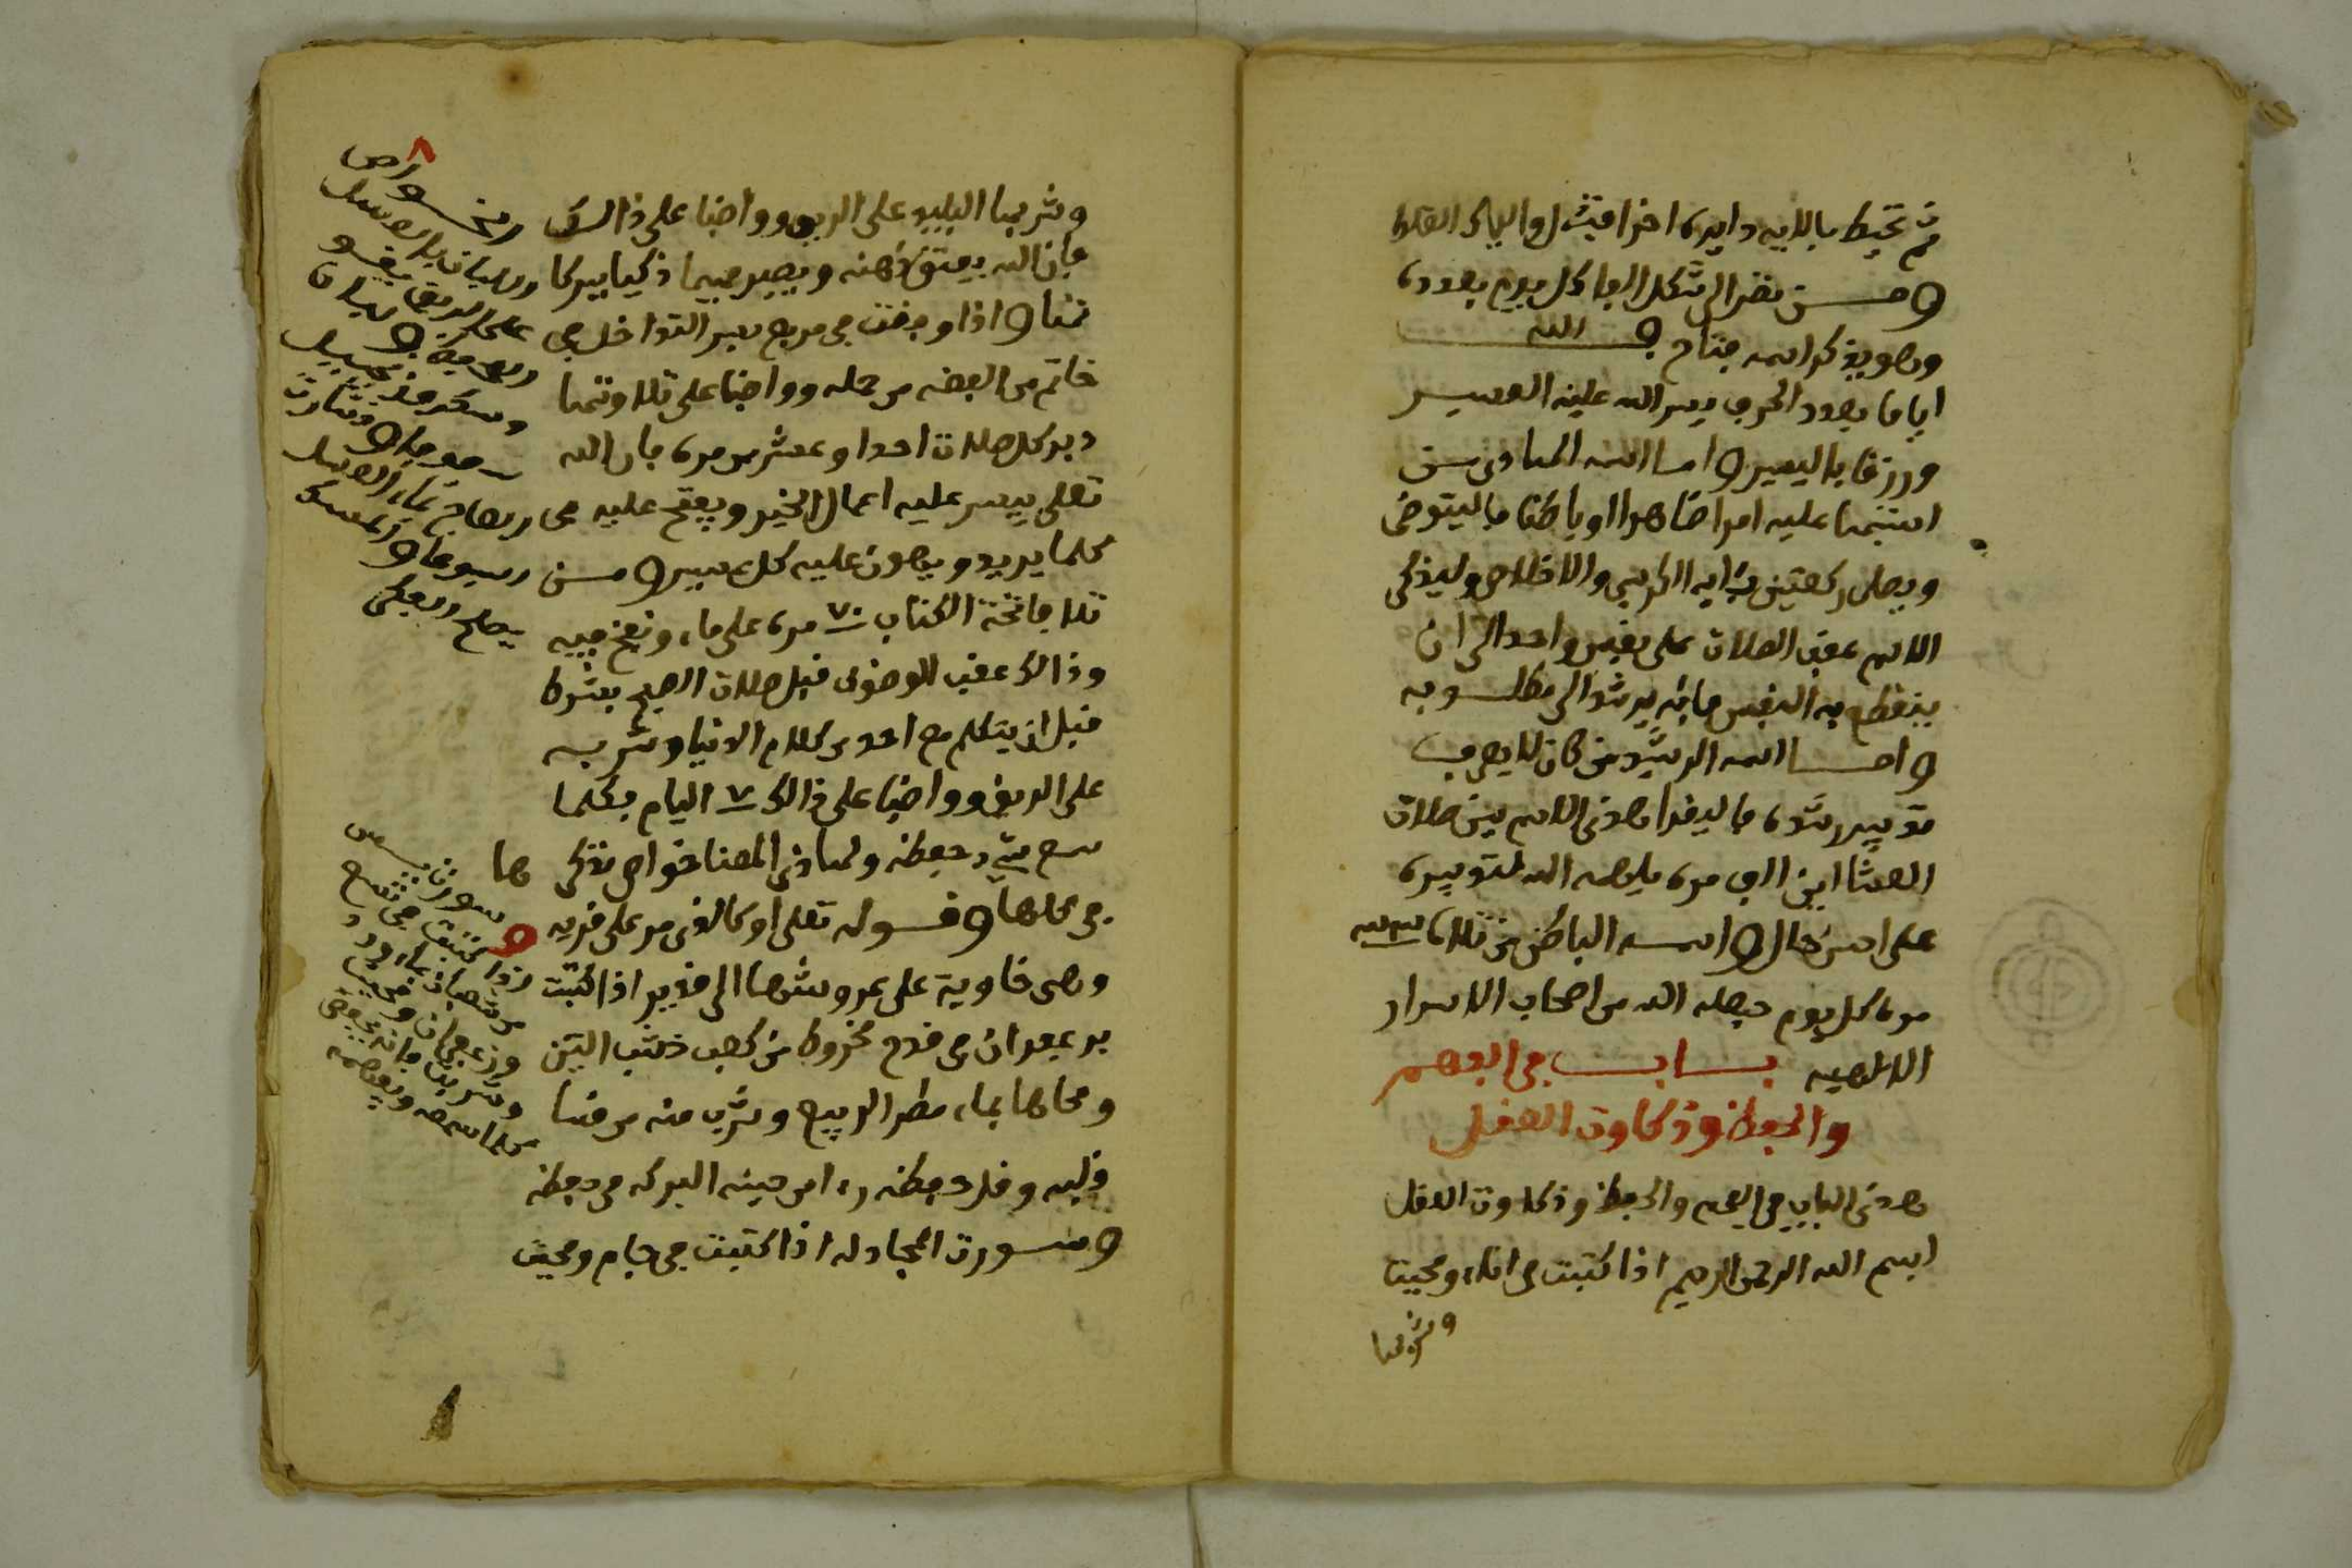 ثم تحيط بالايه دايره اخرا فيثل والباء القلا
ومن نظر الى شكل الهاء كل يوم بعدده
وهو يذكر اسمه فتاح والله
اياما بعدد الحرف ييسر الله عليه العسير
ورزقا باليسير واما اسمه الهادى من
استبهما عليه امرا ضاهرا او باطنا فاليتوضى
ويصلى ركعتين باية الكرسي والاخلاص وليذكر
الاسم عقب الصلاة على نفس واحد الى ان
ينقطع به النفس فانه يرشد الى مطلوبه
واما اسمه الرشيد من كان لا يعرف
تدبير رشده فاليقرا هذى الاسم بين صلاة
العشا اين الف مره يلهمه الله لتدبيره
على احسن حال واسمه الباطن من تلاه
مره كل يوم جعله الله من اصحاب الاسرار
الالهيه باب في الفهم
والحفظ وذكاوة العقل
هذى الباب في الفهم والحفظ وذكاوة العقل
ابسم الله الرحمن الرحيم اذا كتبت في اناء ومحيت
وشربها
وشربها البليد على الريق وواضبا على ذالك
فان الله يفتق ذهنه ويصير فهيما ذكيا ببركا
تها واذا وفقت في مربع بسر التداخل في
خاتم من الفضه من حمله وواضبا على تلاوتها
دبر كل صلاة احدا وعشرين مره فان الله
تعلى ييسر عليه اعمال الخير ويفتح عليه في
كلما يريد ويهون عليه كل عسير ومن
تلا فاتحة الكتاب ٧٠ مره على ماء ونفخ فييه
وذالك عقب الوضوء قبل صلاة الصبح بشرط
قبل ان يتكلم مع احد من كلام الدنيا وشربه
على الريق وواضبا على ذالك ٧ اليام بكلما
سمع شيء حفظه ولهاذى المعنا خواص تذكر
في محلها وقوله تعلى او كالذى مر على قريه
وهى خاوية على عروشها الى قدير اذا كتبت
بزعفران في قدح مخروط من كعب خشب التين
ومحاها بماء مطر الربيع وشرب منه من قسا
قلبه وقل حفظه راء من حينه البركه في حفظه
وسورة المجادله اذا كتبت في جام ومحيت
٨
الخواص
ولبان بالعسل
على الريق
وسكر وزنجبيل
بماء العسل
يصلح
ها
سورة يس
اذا كتبت في
وزعفران ومحيت
وشربت فانه يحفظ
كلما سمعه ويفهمه